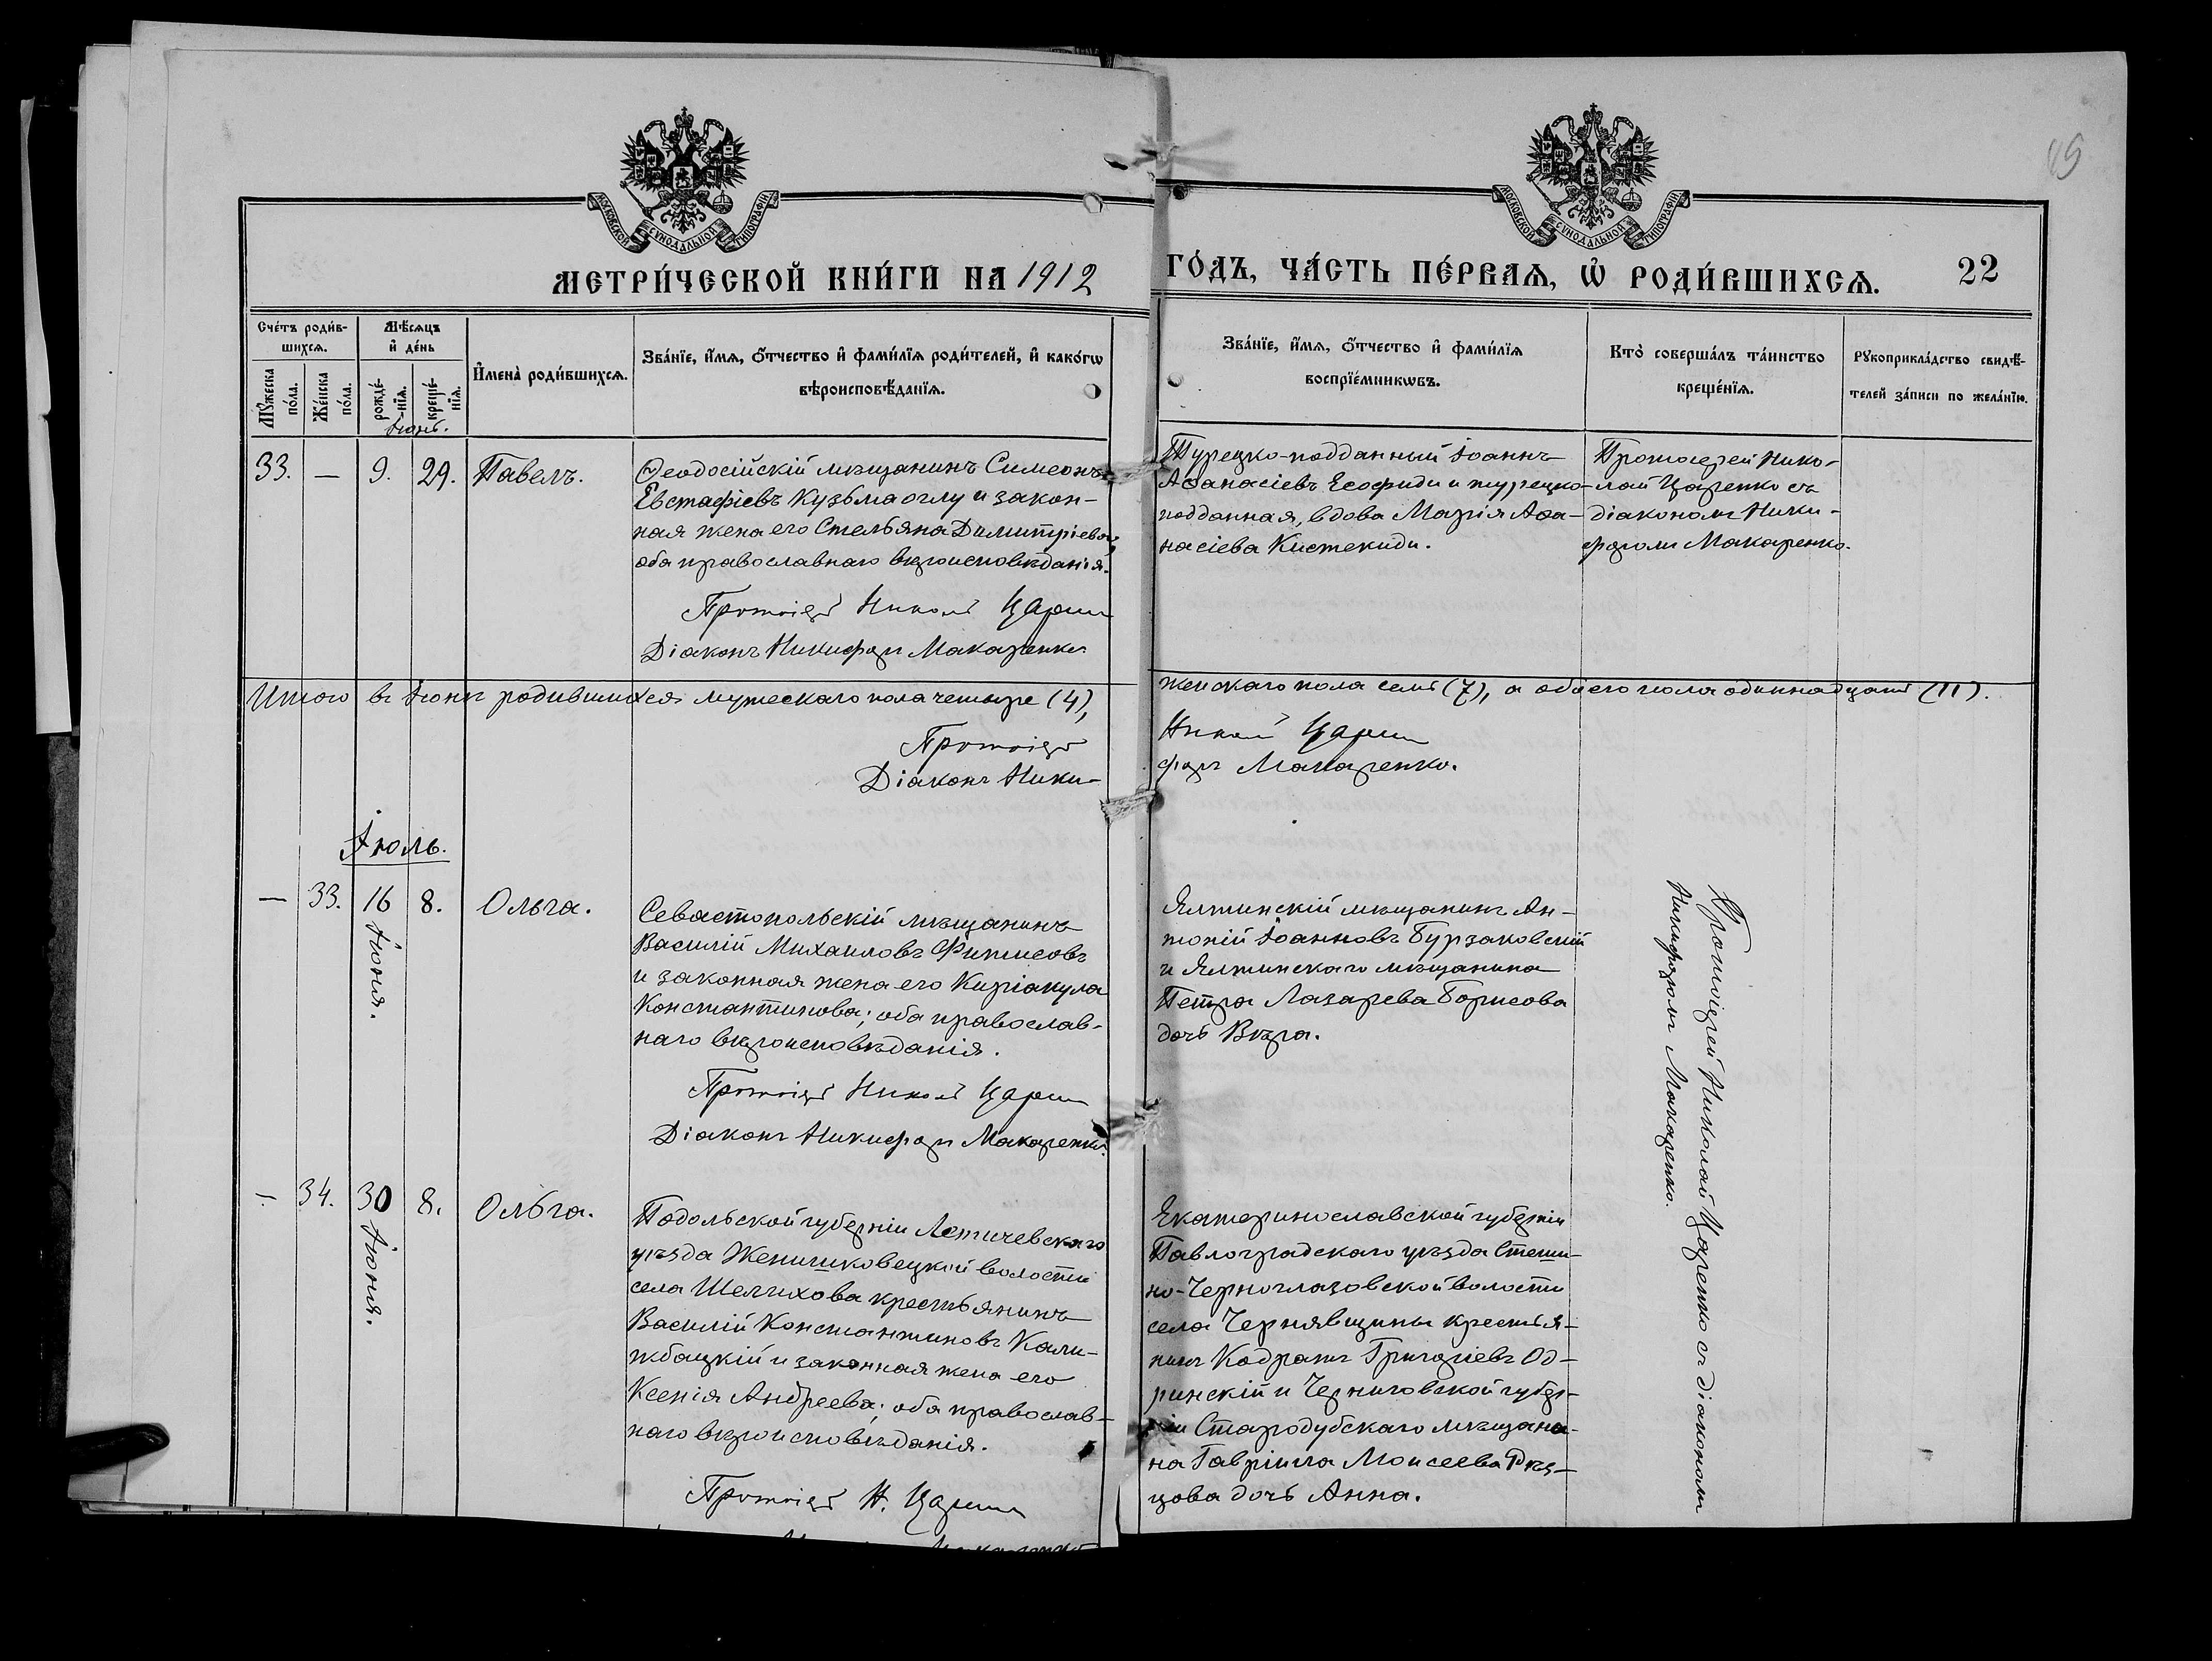 МОСКОВСКОЙ СѴНОДАЛЬНОЙ ТИПОГРАФІИ
МОСКОВСКОЙ СѴНОДАЛЬНОЙ ТИПОГРАФІИ
МЕТРИ́ЧЕСКОЙ КНИ́ГИ НА 1912
ГО́ДЪ, ЧА́СТЬ ПЕ́РВАѦ, Ѡ҆ РОДИ́ВШИХСѦ. 22
Сче́тъ роди́в-
шихсѧ.
Мꙋ́жеска по́ла.
Же́нска по́ла.
Мѣ́сѧцъ
и҆ де́нь
рожде́-
нїѧ.
креще́-
нїѧ.
Іюнь.
И҆мена̀ роди́вшихсѧ.
Зва́нїе, и҆́мѧ, ѻ҆́тчество и҆ фами́лїѧ роди́телей, и҆ како́гѡ
вѣроисповѣ́данїѧ.
Зва́нїе, и҆́мѧ, ѻ҆́тчество и҆ фами́лїѧ
воспрїе́мникѡвъ.
Кто̀ соверша́лъ та́инство
креще́нїѧ.
Рꙋкоприкла́дство свидѣ́-
телей за́писи по жела́нїю.
33. — 9. 29. Павелъ.
Ѳеодосійскій мѣщанинъ Симеонъ
Евстафіевъ Кузьмаоглу и закон-
ная жена его Стельяна Димитріева;
оба православнаго вѣроисповѣданія.
Протоіерей Николай Царенко
Діаконъ Никифоръ Макаренко
Турецко-подданный Іоаннъ
Аѳанасіевъ Есофиди и турецко-
подданная, вдова Марія Аѳа-
насіева Кистекиди.
Протоіерей Нико-
лай Царенко съ
діакономъ Ники-
форомъ Макаренко.
Итого въ Іюнѣ родившихся мужескаго пола четыре (4),
женскаго пола семь (7), а обоего пола одиннадцать (11).
Протоіерей
Николай Царенко
Діаконъ Ники-
форъ Макаренко.
Іюль.
— 33. 16 8. Ольга.
Іюня.
Севастопольскій мѣщанинъ
Василій Михаиловъ Фитисовъ
и законная жена его Киріакула
Константинова; оба православ-
наго вѣроисповѣданія.
Протоіерей Николай Царенко
Діаконъ Никифоръ Макаренко.
Ялтинскій мѣщанинъ Ан-
тоній Іоанновъ Бурзаковскій
и Ялтинскаго мѣщанина
Петра Лазарева Борисова
дочь Вѣра.
Протоіерей Николай Царенко съ діакономъ
Никифоромъ Макаренко.
— 34. 30 8. Ольга.
Іюня.
Подольской губерніи Летичевскаго
уѣзда Женишковецкой волости
села Шелихова крестьянинъ
Василій Константиновъ Кали-
жбацкій и законная жена его
Ксенія Андреева; оба православ-
наго вѣроисповѣданія.
Протоіерей Н. Царенко
Екатеринославской губерніи
Павлоградскаго уѣзда Стеши-
но-Черноглазовской волости
села Чернявщины крестья-
нинъ Кодратъ Григоріевъ Од-
ринскій и Черниговской губер-
ніи Стародубскаго мѣщани-
на Гавріила Моисеева Рѣз-
цова дочь Анна.